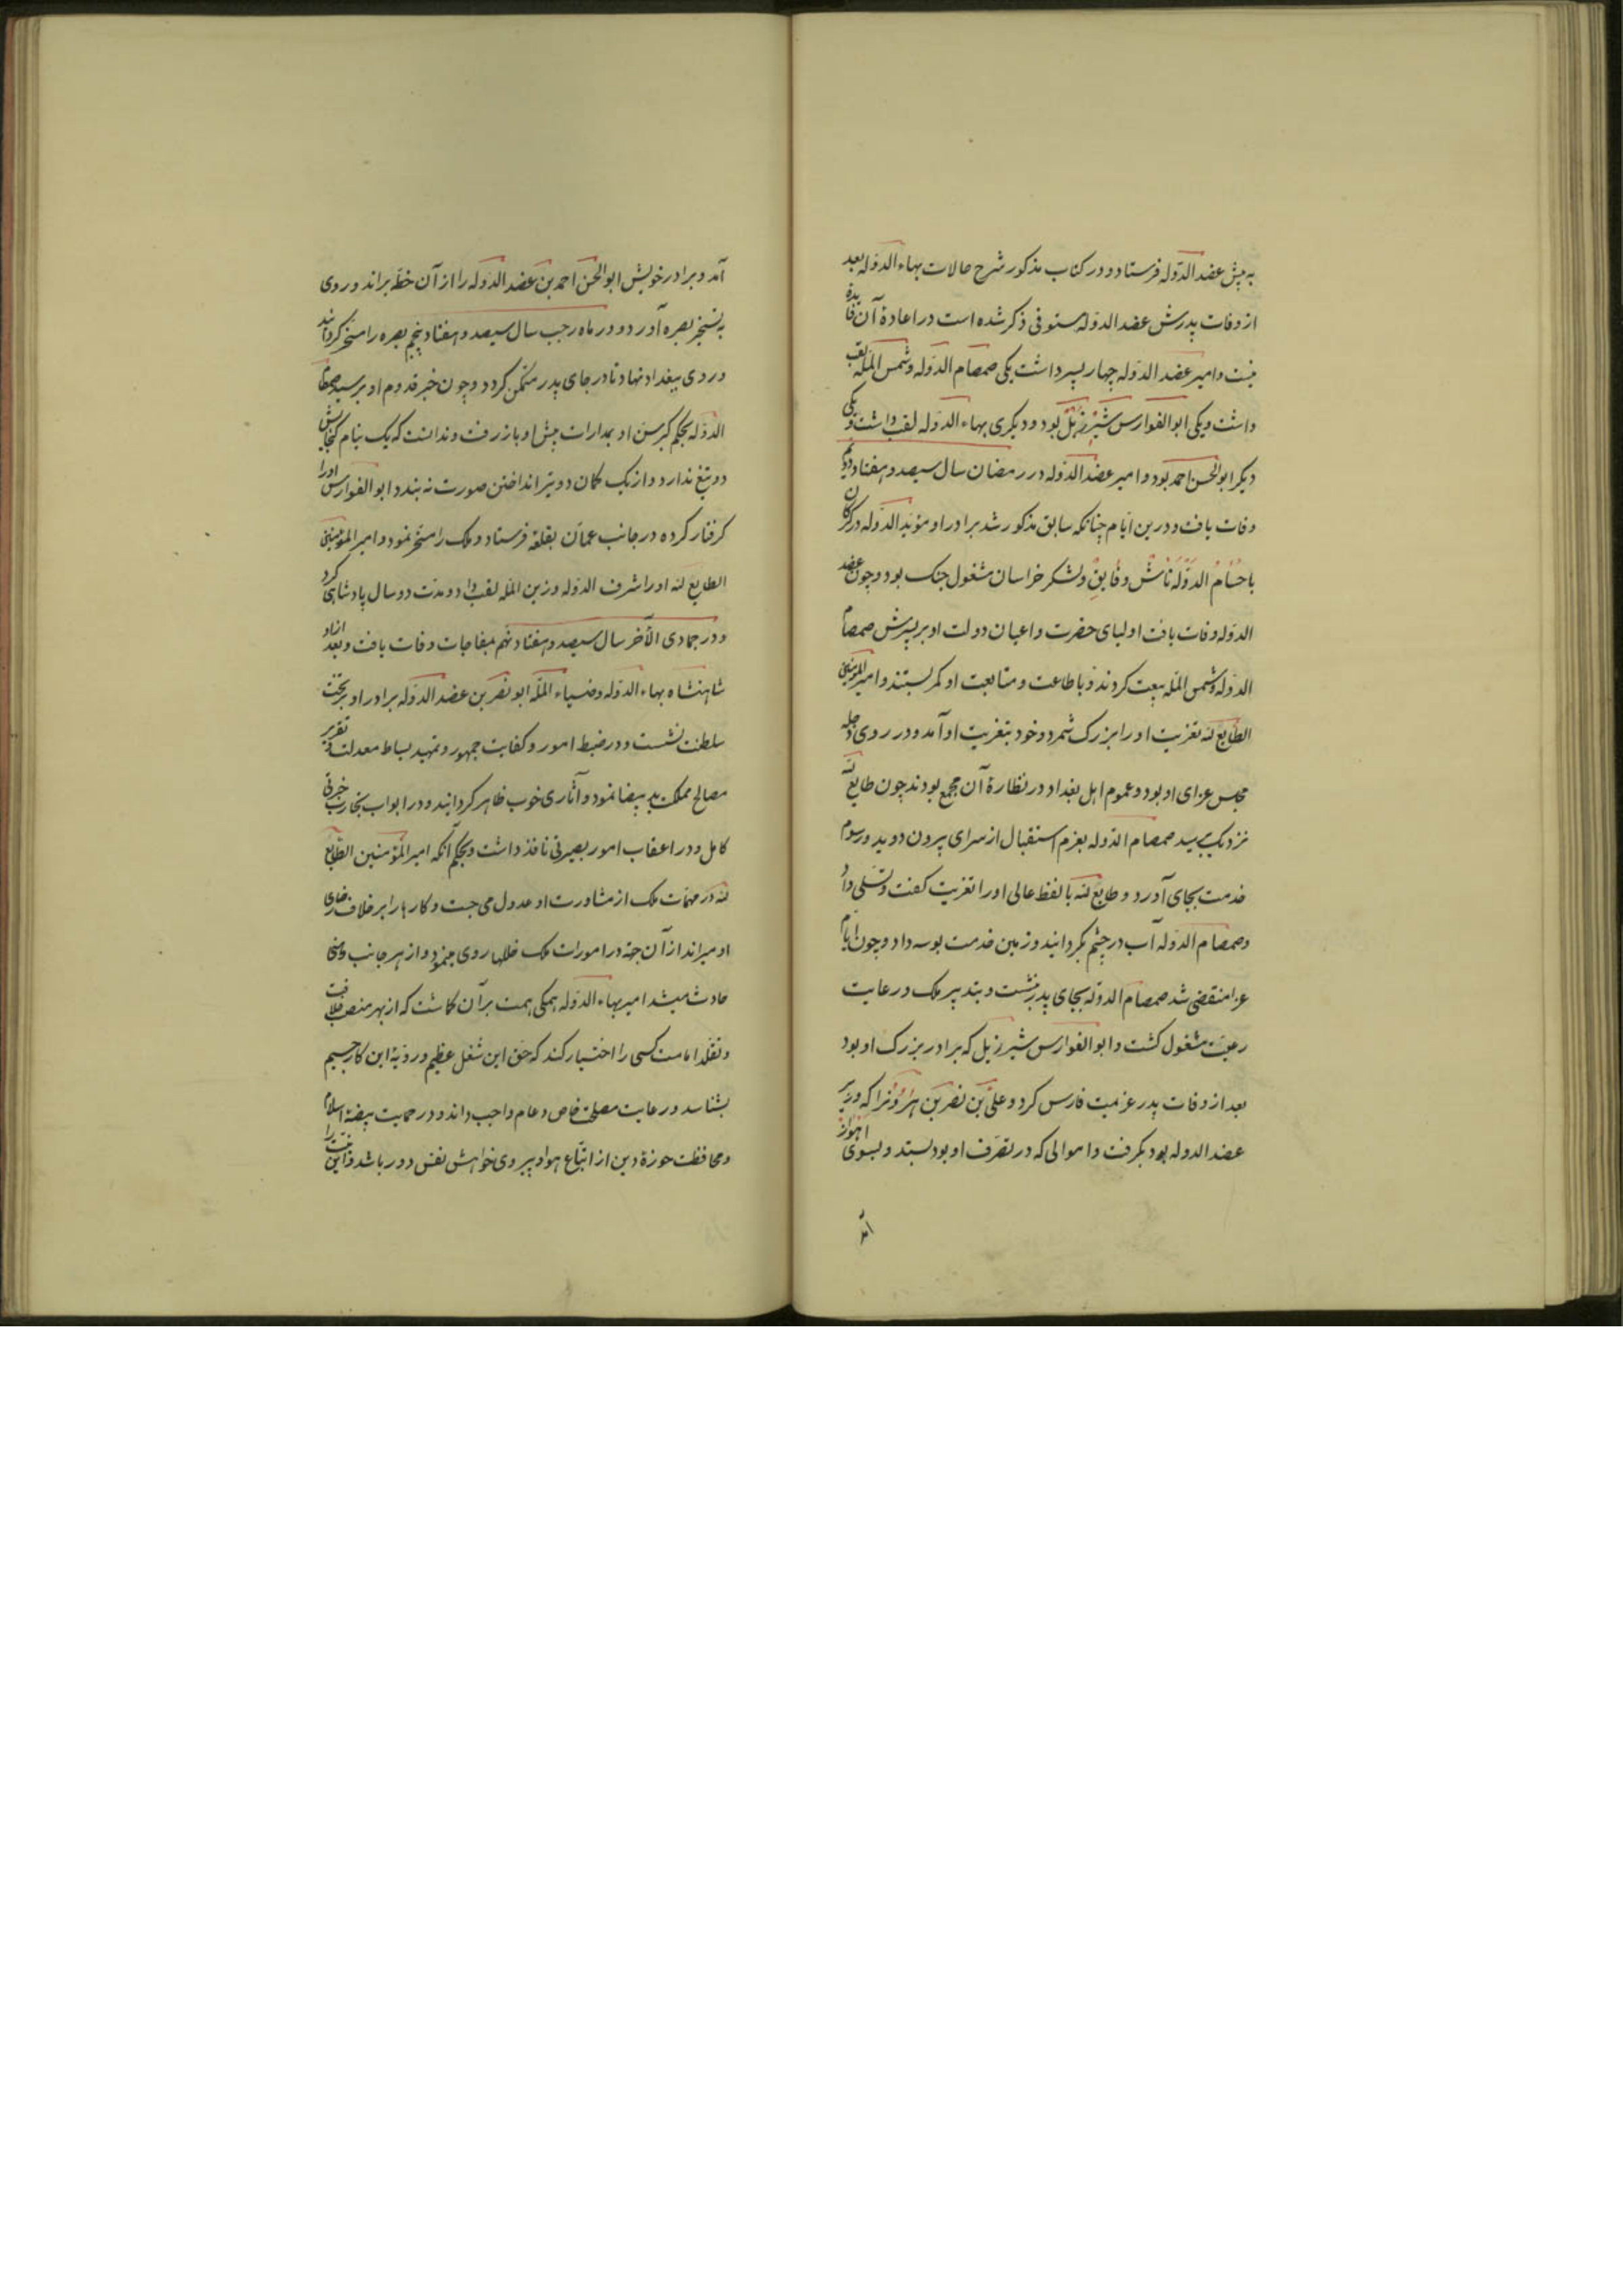 به پیش عضد الدوله فرستاد و در کتاب مذکور شرح حالات بهاء الدوله بعد
از وفات پدرش عضد الدوله مستوفی ذکر شده است در اعادهٔ آن فایدهٔ
نیست و امیر عضد الدوله چهار پسر داشت یکی صمصام الدوله و شمس المله لقب
داشت و یکی ابو الفوارس شیرزیل بود و دیگری بهاء الدوله لقب داشت و یکی
دیگر ابو الحسن احمد بود و امیر عضد الدوله در رمضان سال سیصد و هفتاد و دویم
وفات یافت و درین ایام چنانکه سابق مذکور شد برادر او مؤید الدوله در گرگان
با حسام الدوله تاش و فایق و لشکر خراسان مشغول جنک بود و چون عضد
الدوله وفات یافت اولیای حضرت و اعیان دولت او بر پسرش صمصام
الدوله و شمس المله بیعت کردند و با طاعت و متابعت او کمر بستند و امیر المؤمنین
الطایع لله تعزیت او را بزرک شمرد و خود بتعزیت او آمد و در روی دجله
مجلس عزای او بود و عموم اهل بغداد در نظارهٔ آن مجمع بودند چون طایع لله
نزدیک رسید صمصام الدوله بعزم استقبال از سرای بیرون دوید و رسوم
خدمت بجای آورد و طایع لله بالفظ عالی او را تعزیت کفت و تسلی داد
و صمصام الدوله آب در چشم بکردانید و زمین خدمت بوسه داد و چون ایام
عزا منقضی شد صمصام الدوله بجای پدر بنشست و بتدبیر ملک و رعایت
رعیت مشغول کشت و ابو الفوارس شیرزیل که برادر بزرک او بود
بعد از وفات پدر عزیمت فارس کرد و علی بن نصر بن هرون را که وزیر
عضد الدوله بود بکرفت و اموالی که در تصرف او بود بستد و بسوی اهواز
آمد
آمد و برادر خویش ابو الحسن احمد بن عضد الدوله را از آن خطه براند و روی
به تسخیر بصره آورد و در ماه رجب سال سیصد و هفتاد و پنجم بصره را مسخر کردانید
و روی ببغداد نهاد تا در جای پدر متمکن کردد و چون خبر قدوم او برسید صمصام
الدوله بحکم کبر سن او بمدارات پیش او باز رفت و ندانست که یک نیام کنجایش
دو تیغ ندارد و از یک کمان دو تیر انداختن صورت نه بندد ابو الفوارس او را
کرفتار کرده در جانب عمان بقلعه فرستاد و ملک را مسخر نمود و امیر المؤمنین
الطایع لله او را شرف الدوله و زین المله لقب داد و مدت دو سال پادشاهی کرد
و در جمادی الآخر سال سیصد و هفتاد و نهم بمفاجات وفات یافت و بعد ازو
شاهنشاه بهاء الدوله و ضیاء المله ابو نصر بن عضد الدوله برادر او بر تخت
سلطنت نشست و در ضبط امور و کفایت جمهور و تمهید بساط معدلت و تقریر
مصالح مملکت ید بیضا نمود و آثاری خوب ظاهر کردانید و در ابواب تجارب خبرتی
کامل و در اعقاب امور بصیرتی نافذ داشت و بحکم آنکه امیر المؤمنین الطایع
لله در مهمات ملک از مشاورت او عدول می جست و کارها را بر خلاف رضای
او میراند از آن جهة در امورات ملک خللها روی مینمود و از هر جانب
حادث میشد امیر بهاء الدوله همکی همت بر آن کماشت که از بهر منصب خلافت
و تقلد امامت کسی را اختیار کند که حق این شغل عظیم و رویهٔ این کار جسیم
بشناسد و رعایت مصلحت خاص و عام واجب داند و در حمایت بیضهٔ اسلام
و محافظت حوزهٔ دین از اتباع هوا و پیروی خواهش نفس دور باشد و این